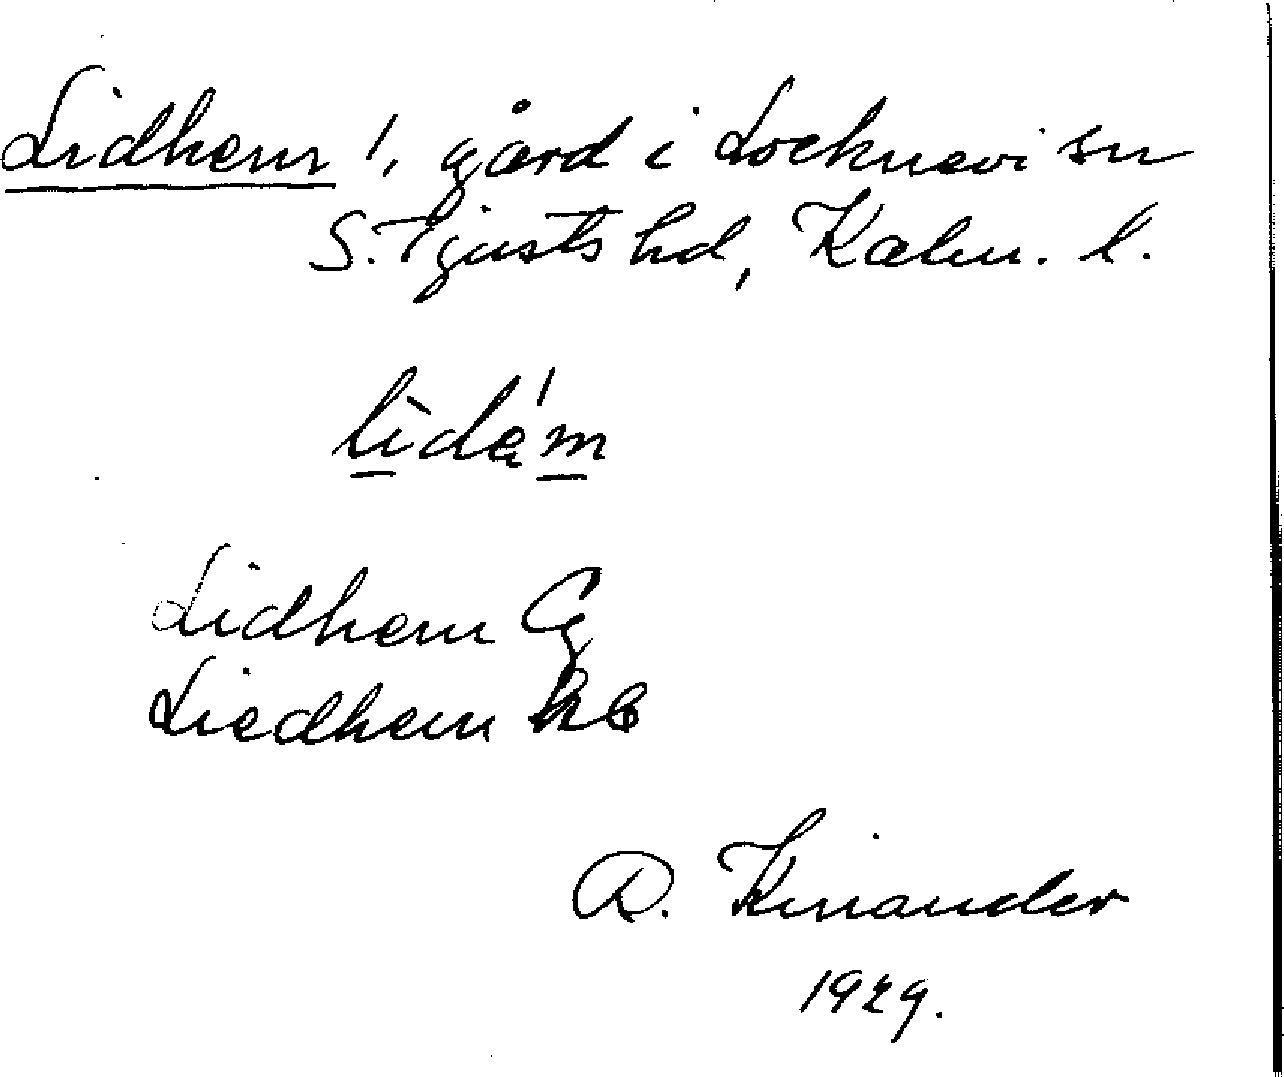 Lidhem !, gård i Locknevi sn
S. Tjusts hd, Kalm. l.
lìdé̱m
Lidhem Cg
Liedhem hb
R. Kinander
1929.